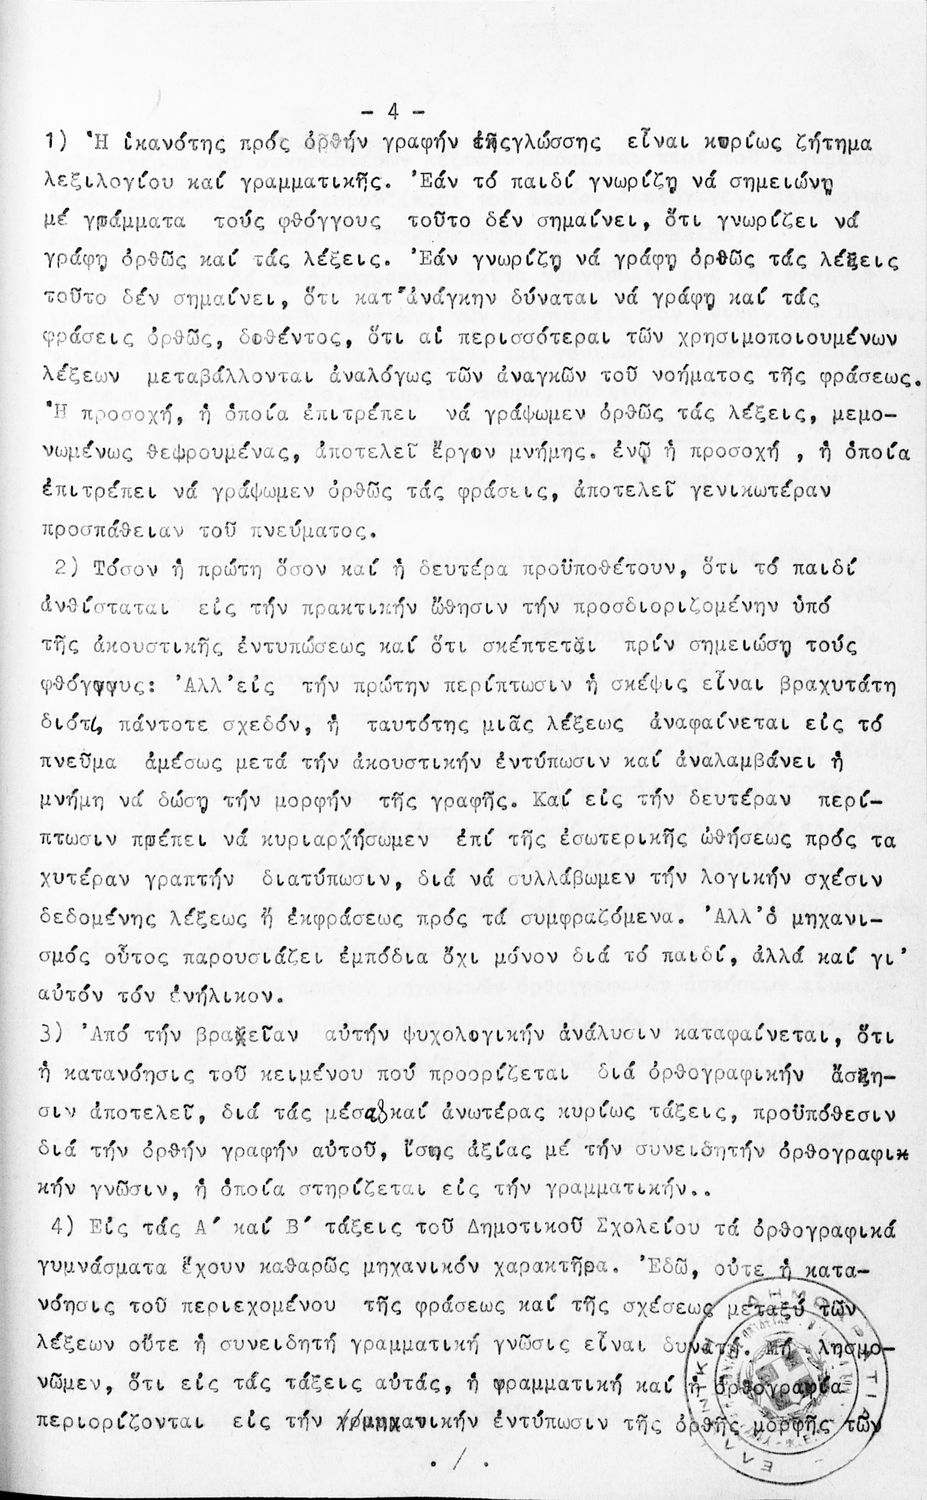 - 4 -
1) Ἡ ἱκανότης πρός ὀρθήν γραφήν τῆς γλώσσης εἶναι κυρίως ζήτημα
λεξιλογίου καί γραμματικῆς. Ἐάν τό παιδί γνωρίζῃ νά σημειώνῃ
μέ γράμματα τούς φθόγγους τοῦτο δέν σημαίνει, ὅτι γνωρίζει νά
γράφῃ ὀρθῶς καί τάς λέξεις. Ἐάν γνωρίζῃ νά γράφῃ ὀρθῶς τάς λέξεις
τοῦτο δέν σημαίνει, ὅτι κατ'ἀνάγκην δύναται νά γράφῃ καί τάς
φράσεις ὀρθῶς, δοθέντος, ὅτι αἱ περισσότεραι τῶν χρησιμοποιουμένων
λέξεων μεταβάλλονται ἀναλόγως τῶν ἀναγκῶν τοῦ νοήματος τῆς φράσεως.
Ἡ προσοχή, ἡ ὁποία ἐπιτρέπει νά γράψωμεν ὀρθῶς τάς λέξεις, μεμο-
νωμένως θεωρουμένας, ἀποτελεῖ ἔργον μνήμης. ἐνῷ ἡ προσοχή , ἡ ὁποία
ἐπιτρέπει νά γράψωμεν ὀρθῶς τάς φράσεις, ἀποτελεῖ γενικωτέραν
προσπάθειαν τοῦ πνεύματος.
2) Τόσον ἡ πρώτη ὅσον καί ἡ δευτέρα προϋποθέτουν, ὅτι τό παιδί
ἀνθίσταται εἰς τήν πρακτικήν ὤθησιν τήν προσδιοριζομένην ὑπό
τῆς ἀκουστικῆς ἐντυπώσεως καί ὅτι σκέπτεται πρίν σημειώσῃ τούς
φθόγγους: Ἀλλ'εἰς τήν πρώτην περίπτωσιν ἡ σκέψις εἶναι βραχυτάτη
διότι, πάντοτε σχεδόν, ἡ ταυτότης μιᾶς λέξεως ἀναφαίνεται εἰς τό
πνεῦμα ἀμέσως μετά τήν ἀκουστικήν ἐντύπωσιν καί ἀναλαμβάνει ἡ
μνήμη νά δώσῃ τήν μορφήν τῆς γραφῆς. Καί εἰς τήν δευτέραν περί-
πτωσιν πρέπει νά κυριαρχήσωμεν ἐπί τῆς ἐσωτερικῆς ὠθήσεως πρός τα
χυτέραν γραπτήν διατύπωσιν, διά νά συλλάβωμεν τήν λογικήν σχέσιν
δεδομένης λέξεως ἤ ἐκφράσεως πρός τά συμφραζόμενα. Ἀλλ'ὁ μηχανι-
σμός οὗτος παρουσιάζει ἐμπόδια ὄχι μόνον διά τό παιδί, ἀλλά καί γι'
αὐτόν τόν ἐνήλικον.
3) Ἀπό τήν βραχεῖαν αὐτήν ψυχολογικήν ἀνάλυσιν καταφαίνεται, ὅτι
ἡ κατανόησις τοῦ κειμένου πού προορίζεται διά ὀρθογραφικήν ἄσκη-
σιν ἀποτελεῖ, διά τάς μέσας καί ἀνωτέρας κυρίως τάξεις, προϋπόθεσιν
διά τήν ὀρθήν γραφήν αὐτοῦ, ἴσης ἀξίας μέ τήν συνειδητήν ὀρθογραφικ
κήν γνῶσιν, ἡ ὁποία στηρίζεται εἰς τήν γραμματικήν..
4) Εἰς τάς Α΄ καί Β΄ τάξεις τοῦ Δημοτικοῦ Σχολείου τά ὀρθογραφικά
γυμνάσματα ἔχουν καθαρῶς μηχανικόν χαρακτῆρα. Ἐδῶ, οὔτε ἡ κατα-
νόησις τοῦ περιεχομένου τῆς φράσεως καί τῆς σχέσεως μεταξύ τῶν
λέξεων οὔτε ἡ συνειδητή γραμματική γνῶσις εἶναι δυνατή. Μή λησμο-
νῶμεν, ὅτι εἰς τάς τάξεις αὐτάς, ἡ γραμματική καί ἡ ὀρθογραφία
περιορίζονται εἰς τήν μηχανικήν ἐντύπωσιν τῆς ὀρθῆς μορφῆς τῶν
. / .